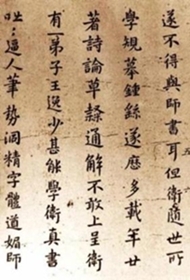 遂不得與師書耳但衛隨世所
學規摹鍾繇遂歷多載年廿
著詩論草隸通解不敢上呈衛
有一弟子王逸少甚能學衛真書
咄〻逼人筆勢洞精字體遒媚師
五